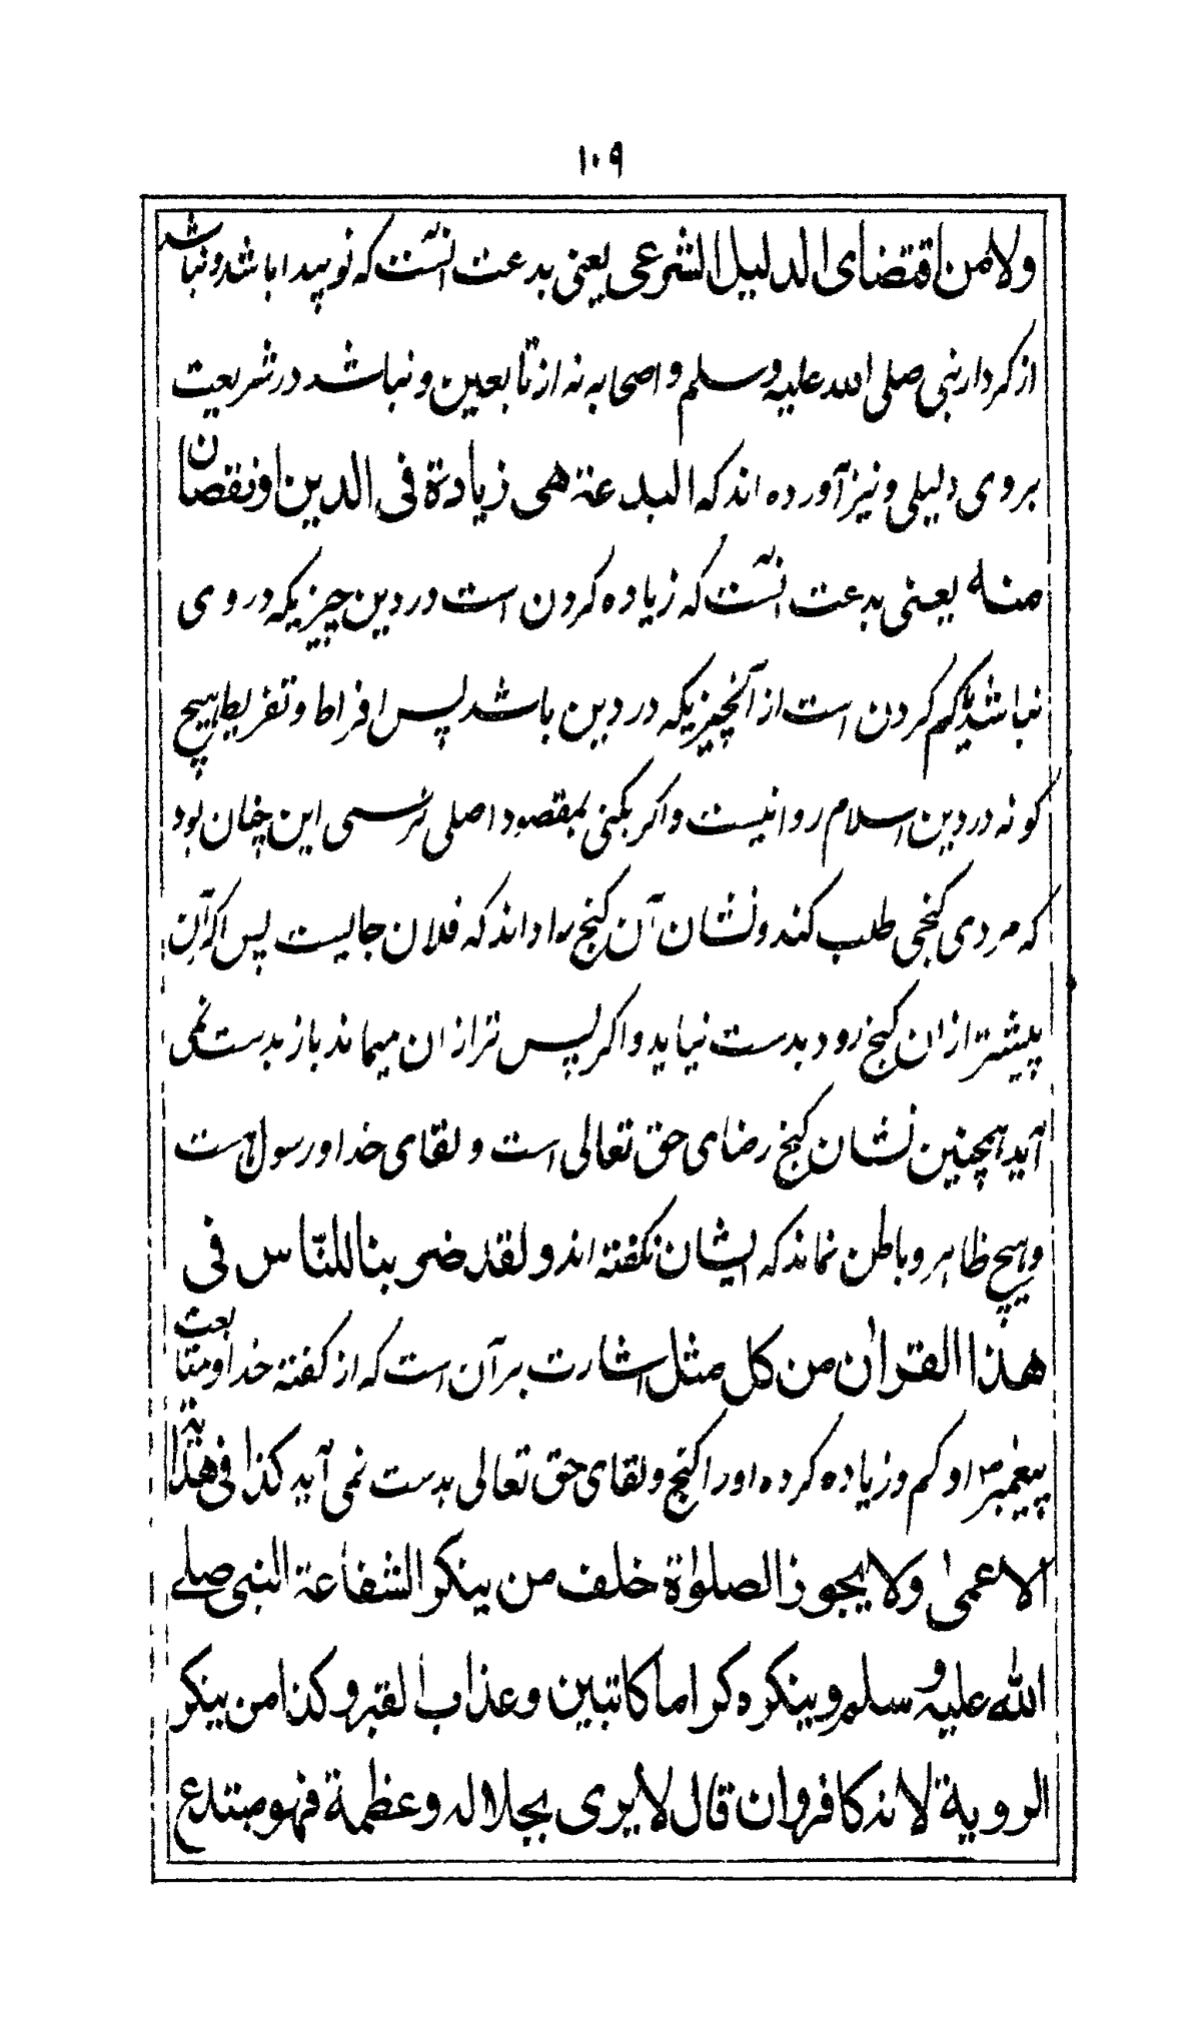 ۱۰۹
ولا من اقتضای الدلیل الشرعی یعنی بدعت آنست که نو پیدا باشد و نباشد
از کردار نبی صلی الله علیه وسلم و اصحابه نه از تابعین و نباشد در شریعت
بروی دلیلی و نیز آورده اند که البدعة هی زیادة فی الدین او نقصان
منه یعنی بدعت آنست که زیاده کردن است در دین چیزیکه در وی
نباشد یا کم کردن است از آنچیزیکه در دین باشد پس افراط و تفریط هیچ
کونه در دین اسلام روا نیست و اکر بکنی بمقصود اصلی نرسی این چنان بود
که مردی کنجی طلب کند و نشان آن کنج را داند که فلان جایست پس اکر آن
پیشتر ازان کنج رود بدست نیاید و اکر پس تر ازان میماند باز بدست نمی
آید همچنین نشان کنج رضای حق تعالی است و لقای خدا و رسول است
و هیچ ظاهر و باطن نماند که ایشان نکفته اند و لقد ضربنا للنّاس فی
هذا القرآن من کل مثل اشارت برآن است که از کفته خدا و متابعت
پیغمبر او کم و زیاده کرده او را کنج و لقای حق تعالی بدست نمی آید کذا فی هدایة
الاعمی ولا یجوز الصلوٰة خلف من ینکر الشفاعة النبی صلے
الله علیه وسلم و ینکره کراما کاتبین و عذاب القبر و کذا من ینکر
الرویة لانه کافر وان قال لا یری بجلاله و عظمة فهو مبتدع